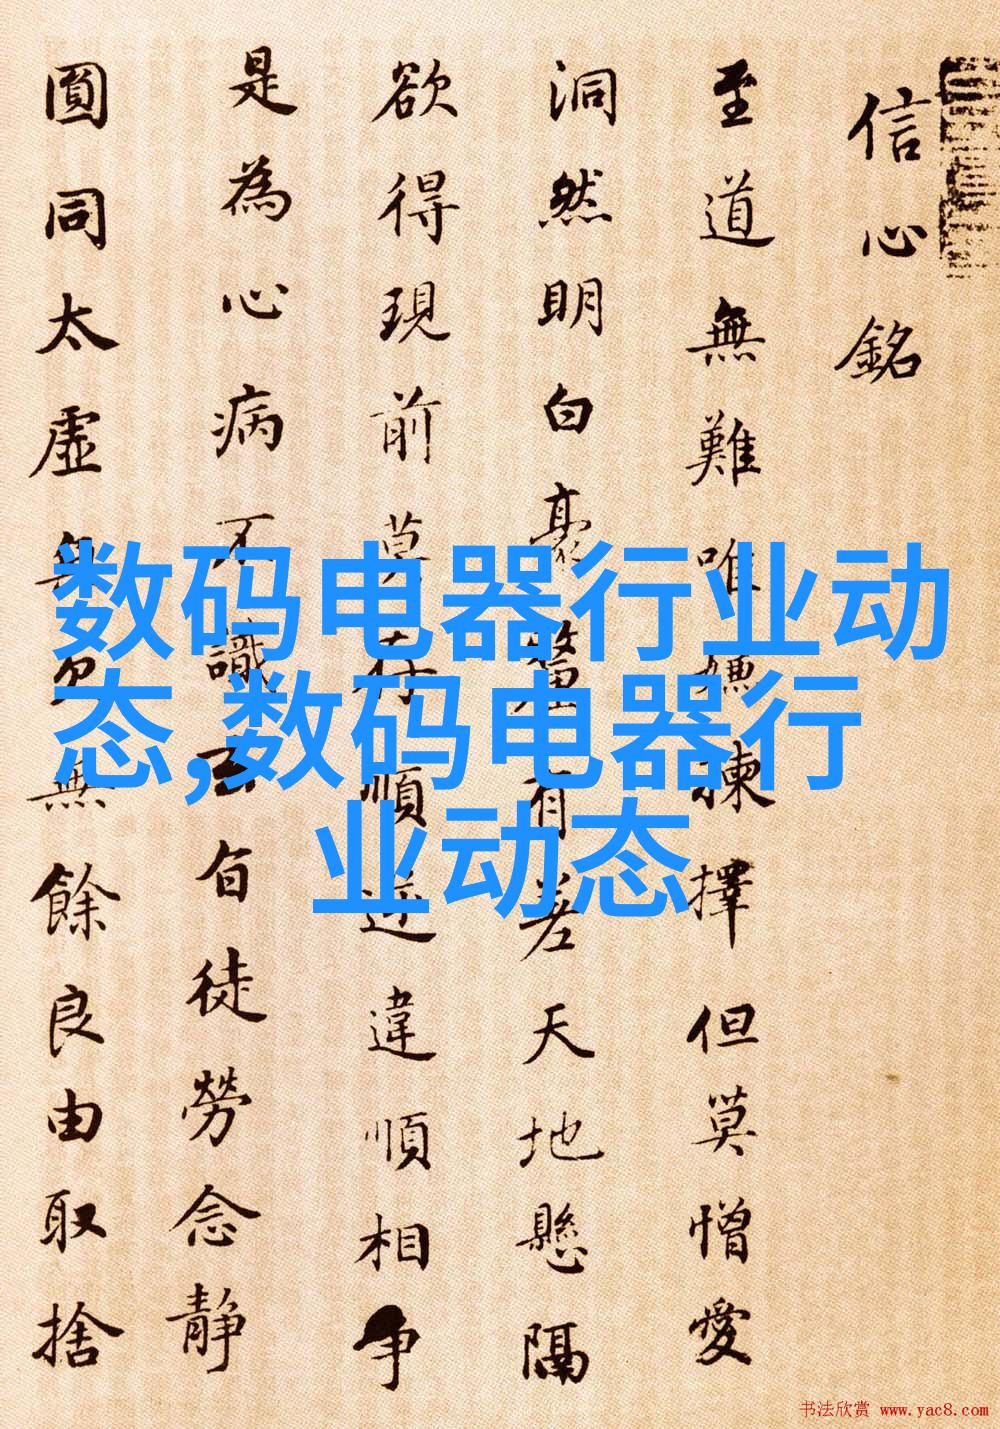 信心銘
至道無難唯嫌揀擇但莫憎愛
洞然明白毫釐有差天地懸隔
欲得現前莫存順逆違順相争
是為心病不識玄旨徒勞念静
圓同太虛無欠無餘良由取捨
数码电器行业动
态,数码电器行
业动态
书法欣赏 www.yac8.com